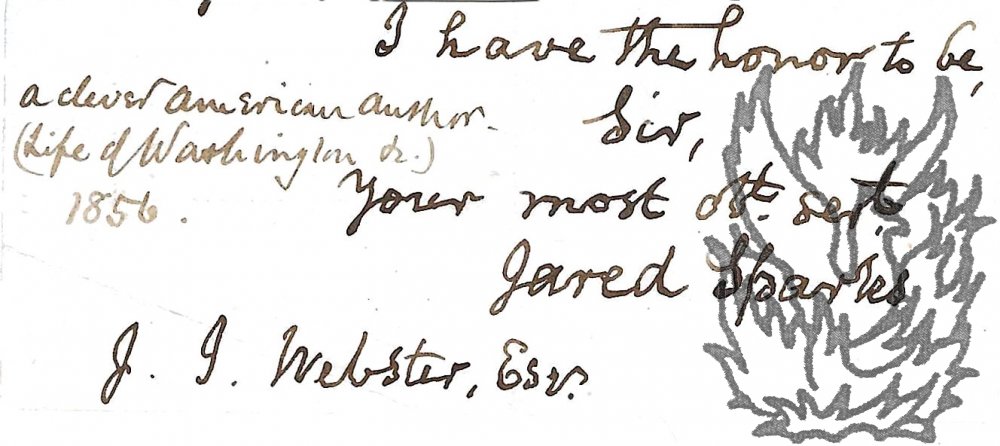 I have the honor to be,
Sir,
Your most obt. sert.
Jared Sparks
J. J. Webster, Esqr.
a clever American author.
(Life of Washington &c.)
1856.